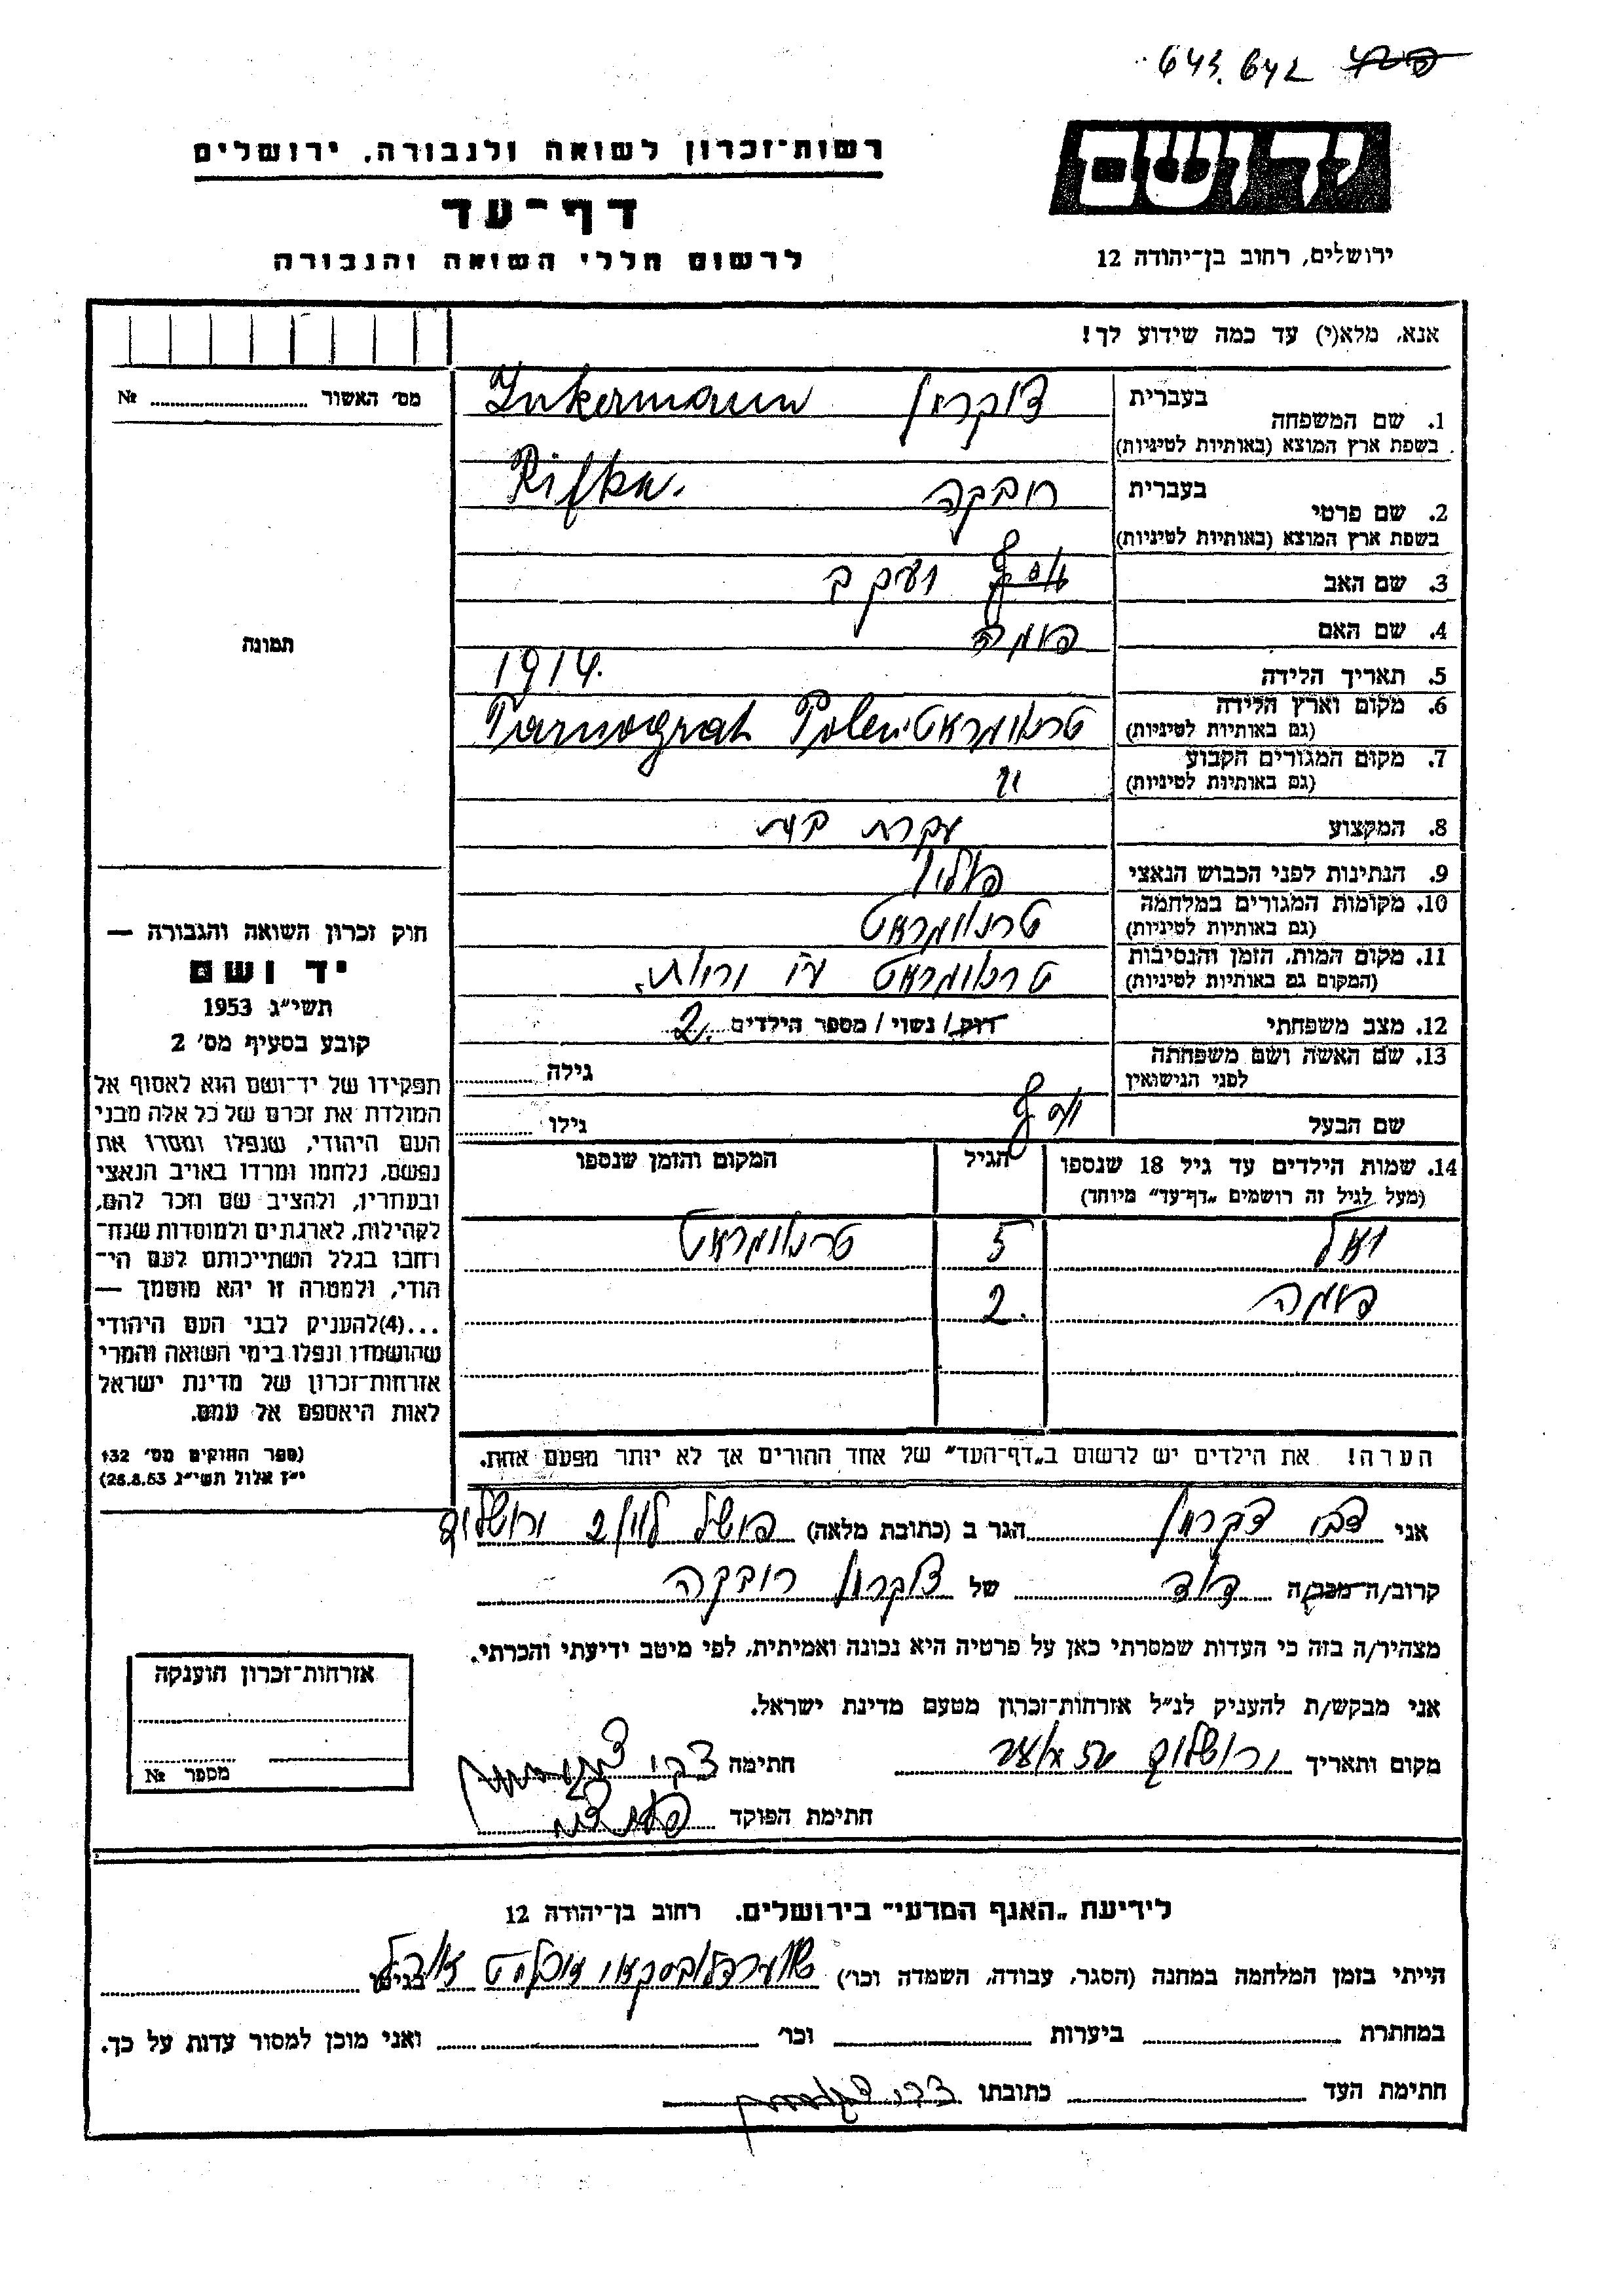 643.642
יד ושם
רשות־זכרון לשואה ולגבורה, ירושלים
דף־עד
לרשום חללי השואה והגבורה
ירושלים, רחוב בן־יהודה 12
אנא, מלא(י) עד כמה שידוע לך!
מס׳ האשור № 
בעברית
1. שם המשפחה
בשפת ארץ המוצא (באותיות לטיניות)
צוקרמן Zukermann
בעברית
2. שם פרטי
בשפת ארץ המוצא (באותיות לטיניות)
רובקה Rifka.
3. שם האב יעקב
4. שם האם פומה
5. תאריך הלידה 1914.
6. מקום וארץ הלידה
(גם באותיות לטיניות)
טרנוגראט Polen Tarnograt
7. מקום המגורים הקבוע
(גם באותיות לטיניות)
"
8. המקצוע עקרת בית
9. הנתינות לפני הכבוש הנאצי פולין
10. מקומות המגורים במלחמה
(גם באותיות לטיניות)
טרנוגראט
11. מקום המות, הזמן והנסיבות
(המקום גם באותיות לטיניות)
טרנוגראט ע״י יריות.
12. מצב משפחתי רוק / נשוי / מספר הילדים 2.
13. שם האשה ושם משפחתה
לפני הנישואין
גילה
שם הבעל יוסף גילו
14. שמות הילדים עד גיל 18 שנספו
(מעל לגיל זה רושמים „דף־עד” מיוחד)
הגיל
המקום והזמן שנספו
יואל 5 טרנוגראט
פומה 2.
הערה! את הילדים יש לרשום ב„דף־העד” של אחד ההורים אך לא יותר מפעם אחת.
תמונה
חוק זכרון השואה והגבורה —
יד ושם
תשי״ג 1953
קובע בסעיף מס׳ 2
תפקידו של יד־ושם הוא לאסוף אל
המולדת את זכרם של כל אלה מבני
העם היהודי, שנפלו ומסרו את
נפשם, נלחמו ומרדו באויב הנאצי
ובעוזריו, ולהציב שם וזכר להם,
לקהילות, לארגונים ולמוסדות שנח־
רחבו בגלל השתייכותם לעם הי־
הודי, ולמטרה זו יהא מוסמך —
...(4) להעניק לבני העם היהודי
שהושמדו ונפלו בימי השואה והמרי
אזרחות־זכרון של מדינת ישראל
לאות היאספם אל עמם.
(ספר החוקים מס׳ 132
י״ז אלול תשי״ג 28.8.53)
אני צבי צוקרמן הגר ב (כתובת מלאה) ירושלים
קרוב/ה מכר/ה דוד של צוקרמן רובקה
מצהיר/ה בזה כי העדות שמסרתי כאן על פרטיה היא נכונה ואמיתית, לפי מיטב ידיעתי והכרתי.
אני מבקש/ת להעניק לנ״ל אזרחות־זכרון מטעם מדינת ישראל.
מקום ותאריך ירושלים חתימה צבי צוקרמן
חתימת הפוקד
אזרחות־זכרון הוענקה
מספר №
לידיעת „האגף המדעי” בירושלים. רחוב בן־יהודה 12
הייתי בזמן המלחמה במחנה (הסגר, עבודה, השמדה וכו׳) בגיטו
במחתרת ביערות וכו׳ ואני מוכן למסור עדות על כך.
חתימת העד כתובתו צבי צוקרמן